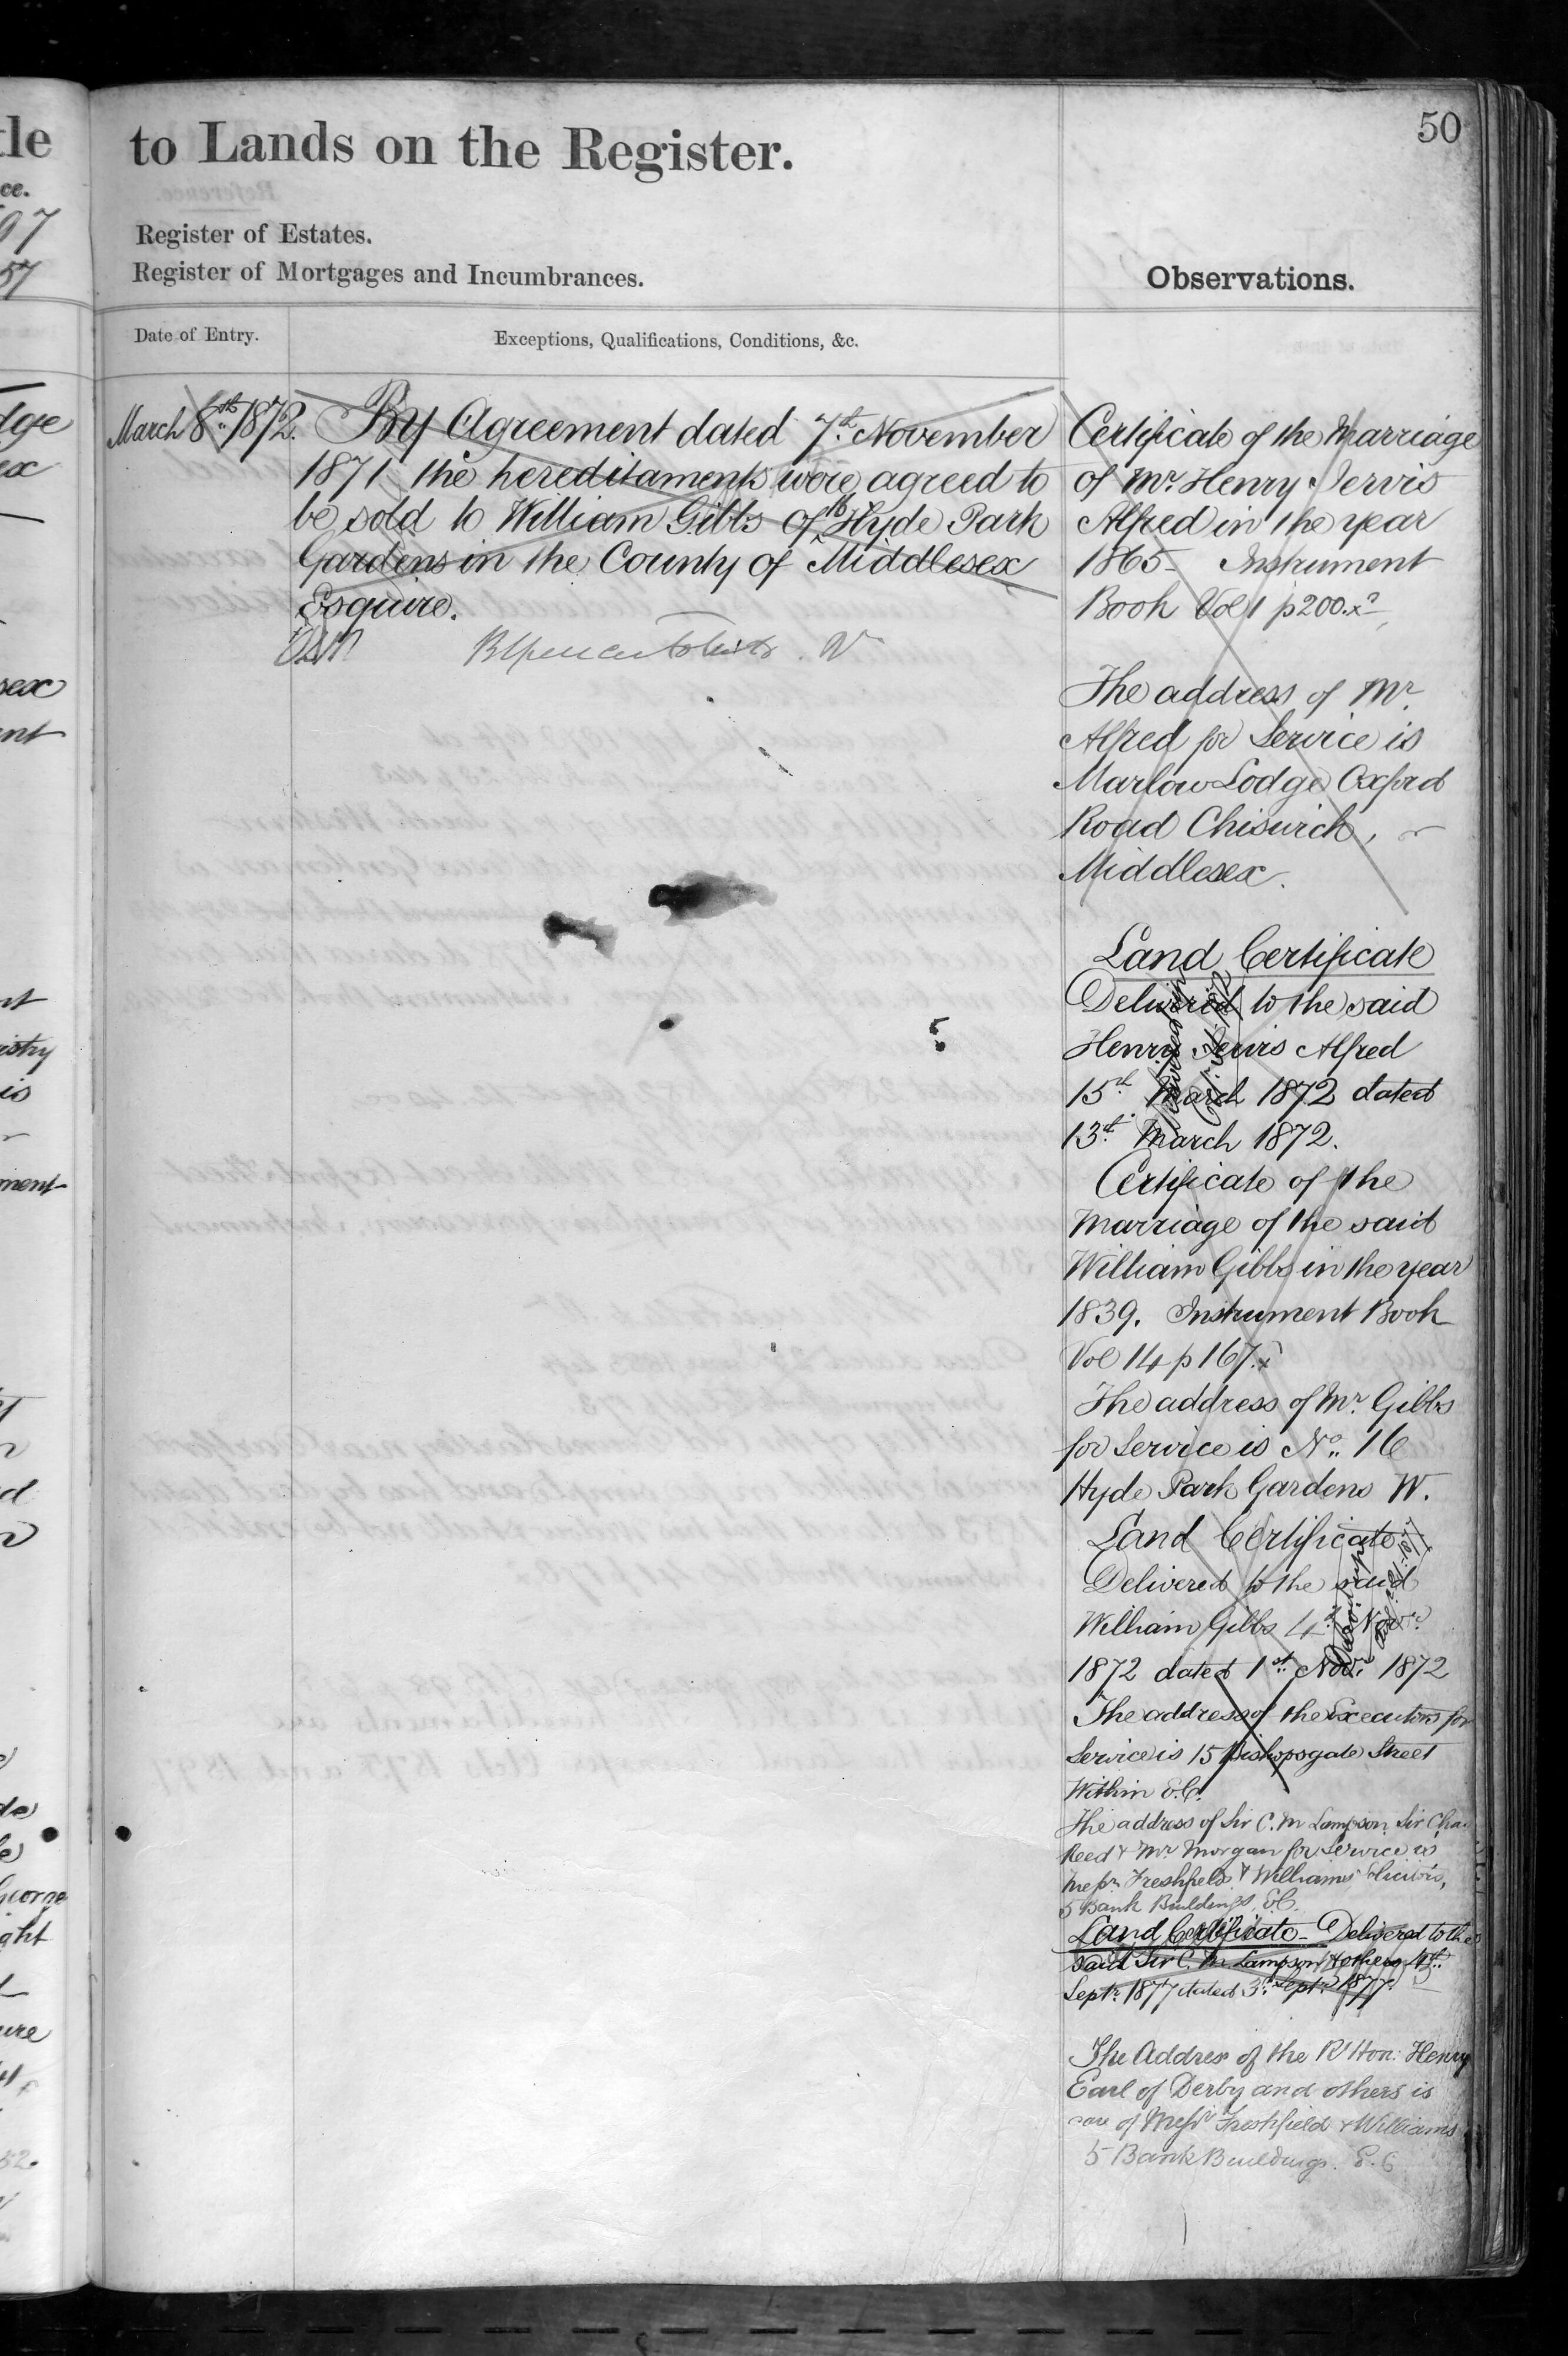 tle
to Lands on the Register.
50
ce.
Register of Estates.
Register of Mortgages and Incumbrances.
Observations.
57
Date of Entry.
Exceptions, Qualifications, Conditions, &c.
March 8th 1872.
By Agreement dated 7th November
1871 the hereditaments were agreed to
be sold to William Gibbs of 16 Hyde Park
Gardens in the County of Middlesex
Esquire.
Certificate of the Marriage
of Mr. Henry Jervis
Alfred in the year
1865 - Instrument
Book Vol 1 p 200.
The address of Mr.
Alfred for Service is
Marlow Lodge Oxford
Road Chiswick,
Middlesex.
Land Certificate
Delivered to the said
Henry Jervis Alfred
15th March 1872 dated
13th March 1872.
Certificate of the
Marriage of the said
William Gibbs in the year
1839. Instrument Book
Vol 14 p 167.
The address of Mr. Gibbs
for Service is No. 16
Hyde Park Gardens W.
Land Certificate
Delivered to the said
William Gibbs 4th Novr.
1872 dated 1st Novr. 1872
The address of the Executors for
Service is 15 Bishopsgate Street
Within E.C.
The address of Sir C. M. Lampson Sir Chas.
Reed & Mr. Morgan for Service is
Messrs. Freshfields & Williams Solicitors,
5 Bank Buildings, E.C.
Land Certificate - Delivered to the
said Sir C. M. Lampson & others 4th
Septr. 1877 dated 3rd Septr. 1877.
The Address of the Rt. Hon: Henry
Earl of Derby and others is
care of Messrs Freshfield & Williams
5 Bank Buildings. E.C